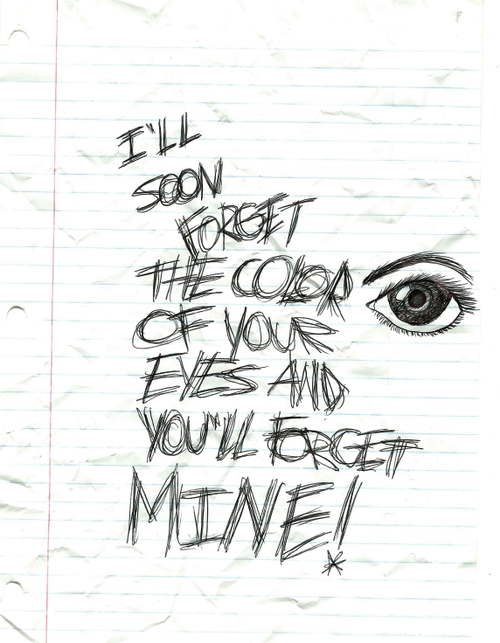 I'LL
SOON
FORGET
THE COLOR
OF YOUR
EYES AND
YOU'LL FORGET
MINE!